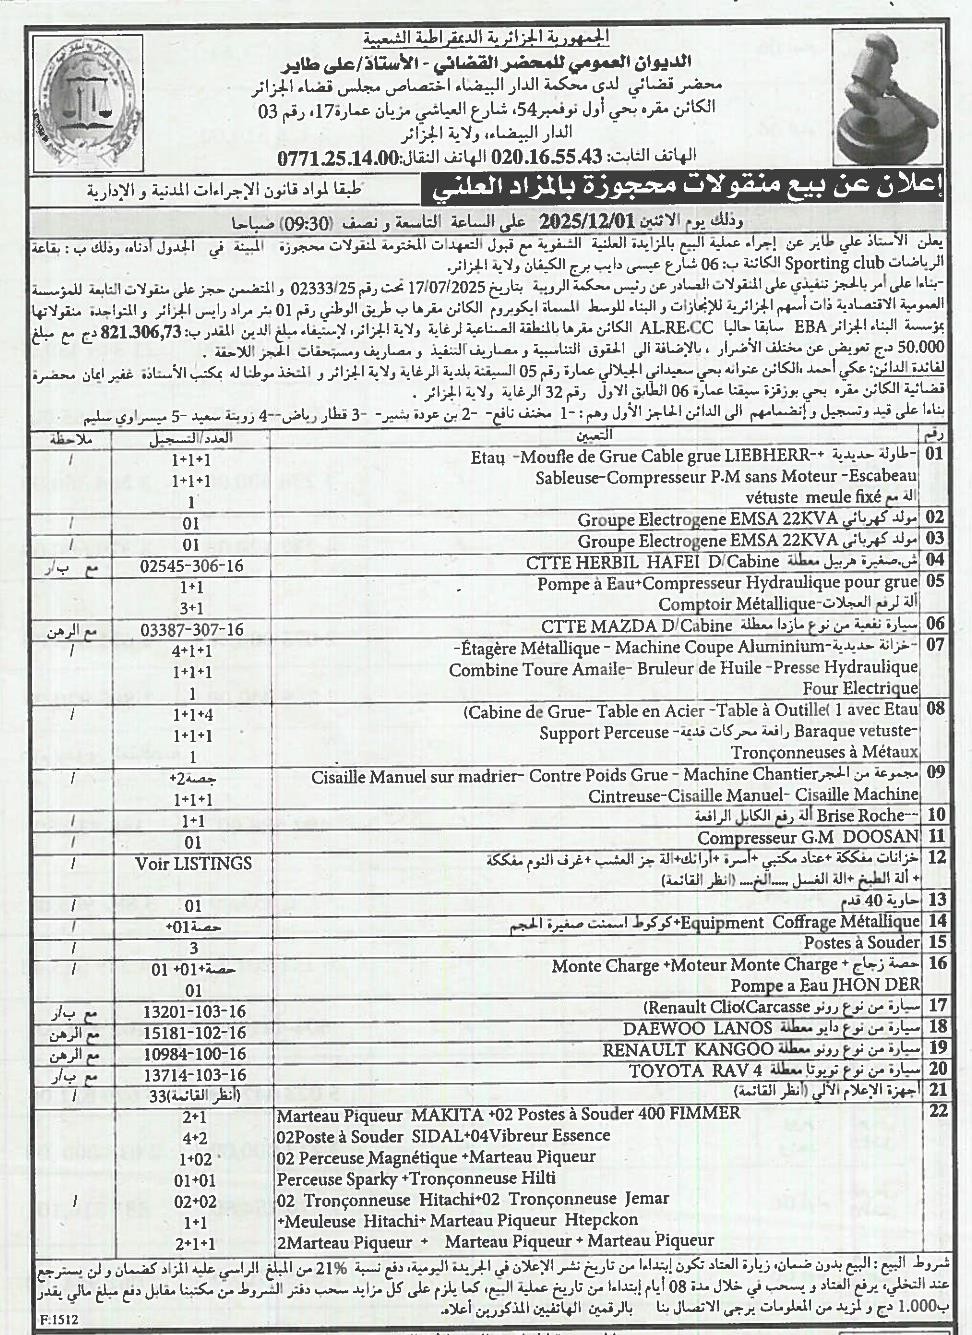 الجمهورية الجزائرية الديمقراطية الشعبية
الديوان العمومي للمحضر القضائي - الأستاذ/ علي طاير
محضر قضائي لدى محكمة الدار البيضاء اختصاص مجلس قضاء الجزائر
الكائن مقره بحي أول نوفمبر 54، شارع العياشي مزيان عمارة 17، رقم 03
الدار البيضاء، ولاية الجزائر
الهاتف الثابت: 020.16.55.43 الهاتف النقال: 0771.25.14.00
إعلان عن بيع منقولات محجوزة بالمزاد العلني
طبقا لمواد قانون الإجراءات المدنية و الإدارية
وذلك يوم الاثنين 2025/12/01 على الساعة التاسعة و نصف (09:30) صباحا
يعلن الأستاذ علي طاير عن إجراء عملية البيع بالمزايدة العلنية الشفوية مع قبول التعهدات المختومة لمنقولات محجوزة المبينة في الجدول أدناه، وذلك ب: بقاعة
الرياضات Sporting club الكائنة ب: 06 شارع عيسى دايب برج الكيفان ولاية الجزائر.
-بناءا على أمر بالحجز تنفيذي على المنقولات الصادر عن رئيس محكمة الروبية بتاريخ 17/07/2025 تحت رقم 02333/25 و المتضمن حجز على منقولات التابعة للمؤسسة
العمومية الاقتصادية ذات أسهم الجزائرية للإنجازات و البناء للوسط المسماة ايكوبروم الكائن مقرها ب طريق الوطني رقم 01 بئر مراد رايس الجزائر و المتواجدة منقولاتها
بمؤسسة البناء الجزائر EBA سابقا حاليا AL.RE.CC الكائن مقرها بالمنطقة الصناعية لرغاية ولاية الجزائر، لإستيفاء مبلغ الدين المقدر ب: 821.306,73 دج مع مبلغ
50.000 د.ج تعويض عن مختلف الأضرار ، بالإضافة الى الحقوق التناسبية و مصاريف التنفيذ و مصاريف ومستحقات الحجز اللاحقة .
لفائدة الدائن: عكي أحمد الكائن عنوانه بحي سعيداني الجيلالي عمارة رقم 05 السبقتة بلدية الرغاية ولاية الجزائر و المتخذ موطنا له بمكتب الأستاذة غفير ايمان محضرة
قضائية الكائن مقره بحي بوزقزة سيقنا عمارة 06 الطابق الاول رقم 32 الرغاية ولاية الجزائر .
بناءا على قيد وتسجيل و إنضمامهم الى الدائن الحاجز الأول وهم: -1 مخنف نافع- -2 بن عودة بشير- -3 قطار رياض--4 زوينة سعيد -5 ميسراوي سليم
رقم التعيين العدد/التسجيل ملاحظة
01 -طاولة حديدية +-Etau -Moufle de Grue Cable grue LIEBHERR 1+1+1 /
Sableuse-Compresseur P.M sans Moteur -Escabeau 1+1+1
الة مع vétuste meule fixé 1
02 مولد كهربائي Groupe Electrogene EMSA 22KVA 01 /
03 مولد كهربائي Groupe Electrogene EMSA 22KVA 01 /
04 ش.صغيرة هربيل معطلة CTTE HERBIL HAFEI D/Cabine 02545-306-16 مع ب/ر
05 Pompe à Eau+Compresseur Hydraulique pour grue 1+1
آلة لرفع العجلات-Comptoir Métallique 3+1
06 سيارة نفعية من نوع مازدا معطلة CTTE MAZDA D/Cabine 03387-307-16 مع الرهن
07 -خزانة حديدية-Étagère Métallique - Machine Coupe Aluminium- 4+1+1 /
Combine Toure Amaile- Bruleur de Huile -Presse Hydraulique 1+1+1
Four Electrique 1
08 (Cabine de Grue- Table en Acier -Table à Outille( 1 avec Etau 1+1+4 /
Support Perceuse -رافعة محركات قديمة Baraque vetuste- 1+1+1
Tronçonneuses à Métaux 1
09 مجموعة من الحجر Cisaille Manuel sur madrier- Contre Poids Grue - Machine Chantier حصة+2 /
Cintreuse-Cisaille Manuel- Cisaille Machine 1+1+1
10 Brise Roche-- ألة رفع الكابل الرافعة 1+1 /
11 Compresseur G.M DOOSAN 01 /
12 خزانات مفككة +عتاد مكتبي +أسرة +أرائك+الة جز العشب +غرف النوم مفككة Voir LISTINGS /
+ ألة الطبخ +الة الغسل .....الخ.... (انظر القائمة) /
13 حاوية 40 قدم 01 /
14 Equipment Coffrage Métallique+كركوط اسمنت صغيرة الحجم حصة01+ /
15 Postes à Souder 3 /
16 حصة زجاج + Monte Charge +Moteur Monte Charge حصة+01+ 01 /
Pompe a Eau JHON DER 01
17 سيارة من نوع رونو Renault Clio(Carcasse) 13201-103-16 مع ب/ر
18 سيارة من نوع دايو معطلة DAEWOO LANOS 15181-102-16 مع الرهن
19 سيارة من نوع رونو معطلة RENAULT KANGOO 10984-100-16 مع الرهن
20 سيارة من نوع تويوتا معطلة TOYOTA RAV 4 13714-103-16 مع ب/ر
21 أجهزة الاعلام الألي (أنظر القائمة) 33(أنظر القائمة) /
22 Marteau Piqueur MAKITA +02 Postes à Souder 400 FIMMER 2+1
02Poste à Souder SIDAL+04Vibreur Essence 4+2
02 Perceuse Magnétique +Marteau Piqueur 1+02
Perceuse Sparky +Tronçonneuse Hilti 01+01
02 Tronçonneuse Hitachi+02 Tronçonneuse Jemar 02+02 /
+Meuleuse Hitachi+ Marteau Piqueur Htepckon 1+1
2Marteau Piqueur + Marteau Piqueur + Marteau Piqueur 2+1+1
شروط البيع : البيع بدون ضمان، زيارة العتاد تكون إبتداءا من تاريخ نشر الإعلان في الجريدة اليومية، دفع نسبة 21% من المبلغ الراسي عليه المزاد كضمان و لن يسترجع
عند التخلي، يرفع العتاد و يسحب في خلال مدة 08 أيام إبتداءا من تاريخ عملية البيع، كما يلزم على كل مزايد سحب دفتر الشروط من مكتبنا مقابل دفع مبلغ مالي يقدر
ب1.000 دج و لمزيد من المعلومات يرجى الاتصال بنا بالرقمين الهاتفيين المذكورين أعلاه.
F:1512